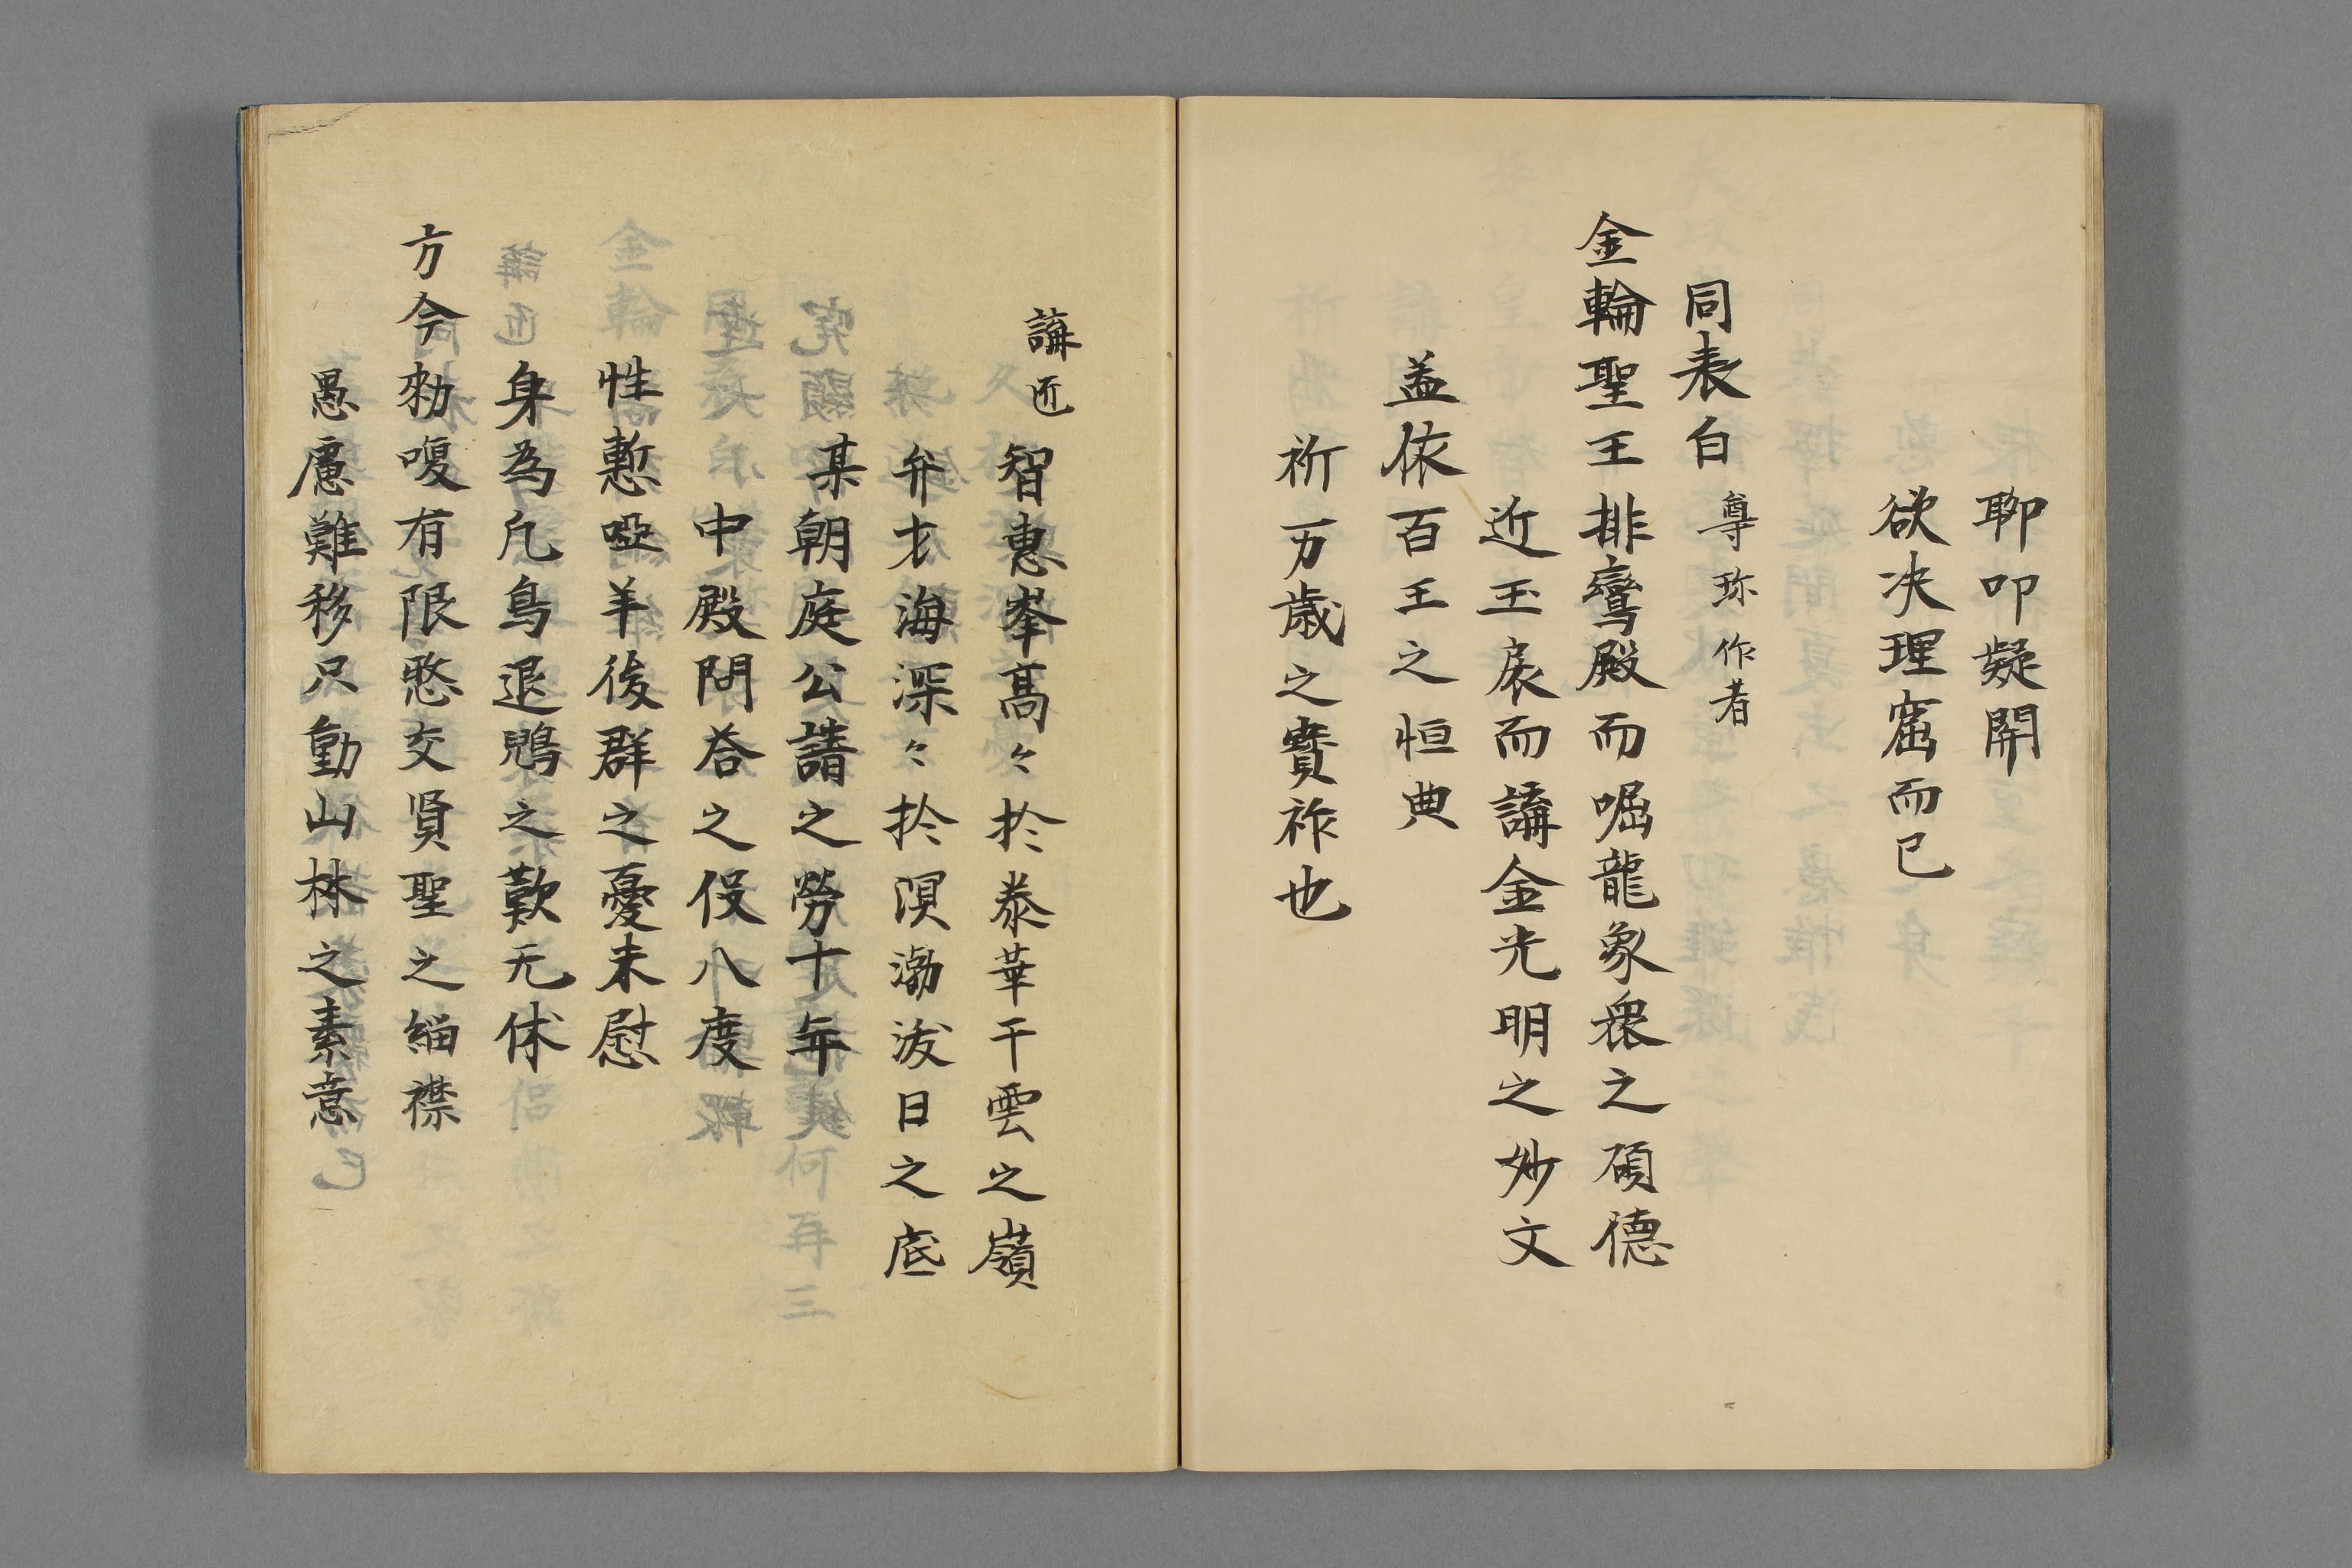 聊叩疑開
欲决理窟而已
同表白 尊珎作者
金輪聖王排鸞殿而崛龍象衆之碩德
近玉扆而講金光明之妙文
蓋依百王之恒典
祈万歳之寳祚也
講匠 智惠峯高々於泰華干雲之嶺
弁才海深々於溟渤浴日之底
某朝庭公請之勞十年
中殿問荅之役八度
性慙啞羊後群之憂未慰
身為凢鳥退鵶之歎无休
方今勑喚有限憗交賢聖之緇襟
愚慮難移只動山林之素意